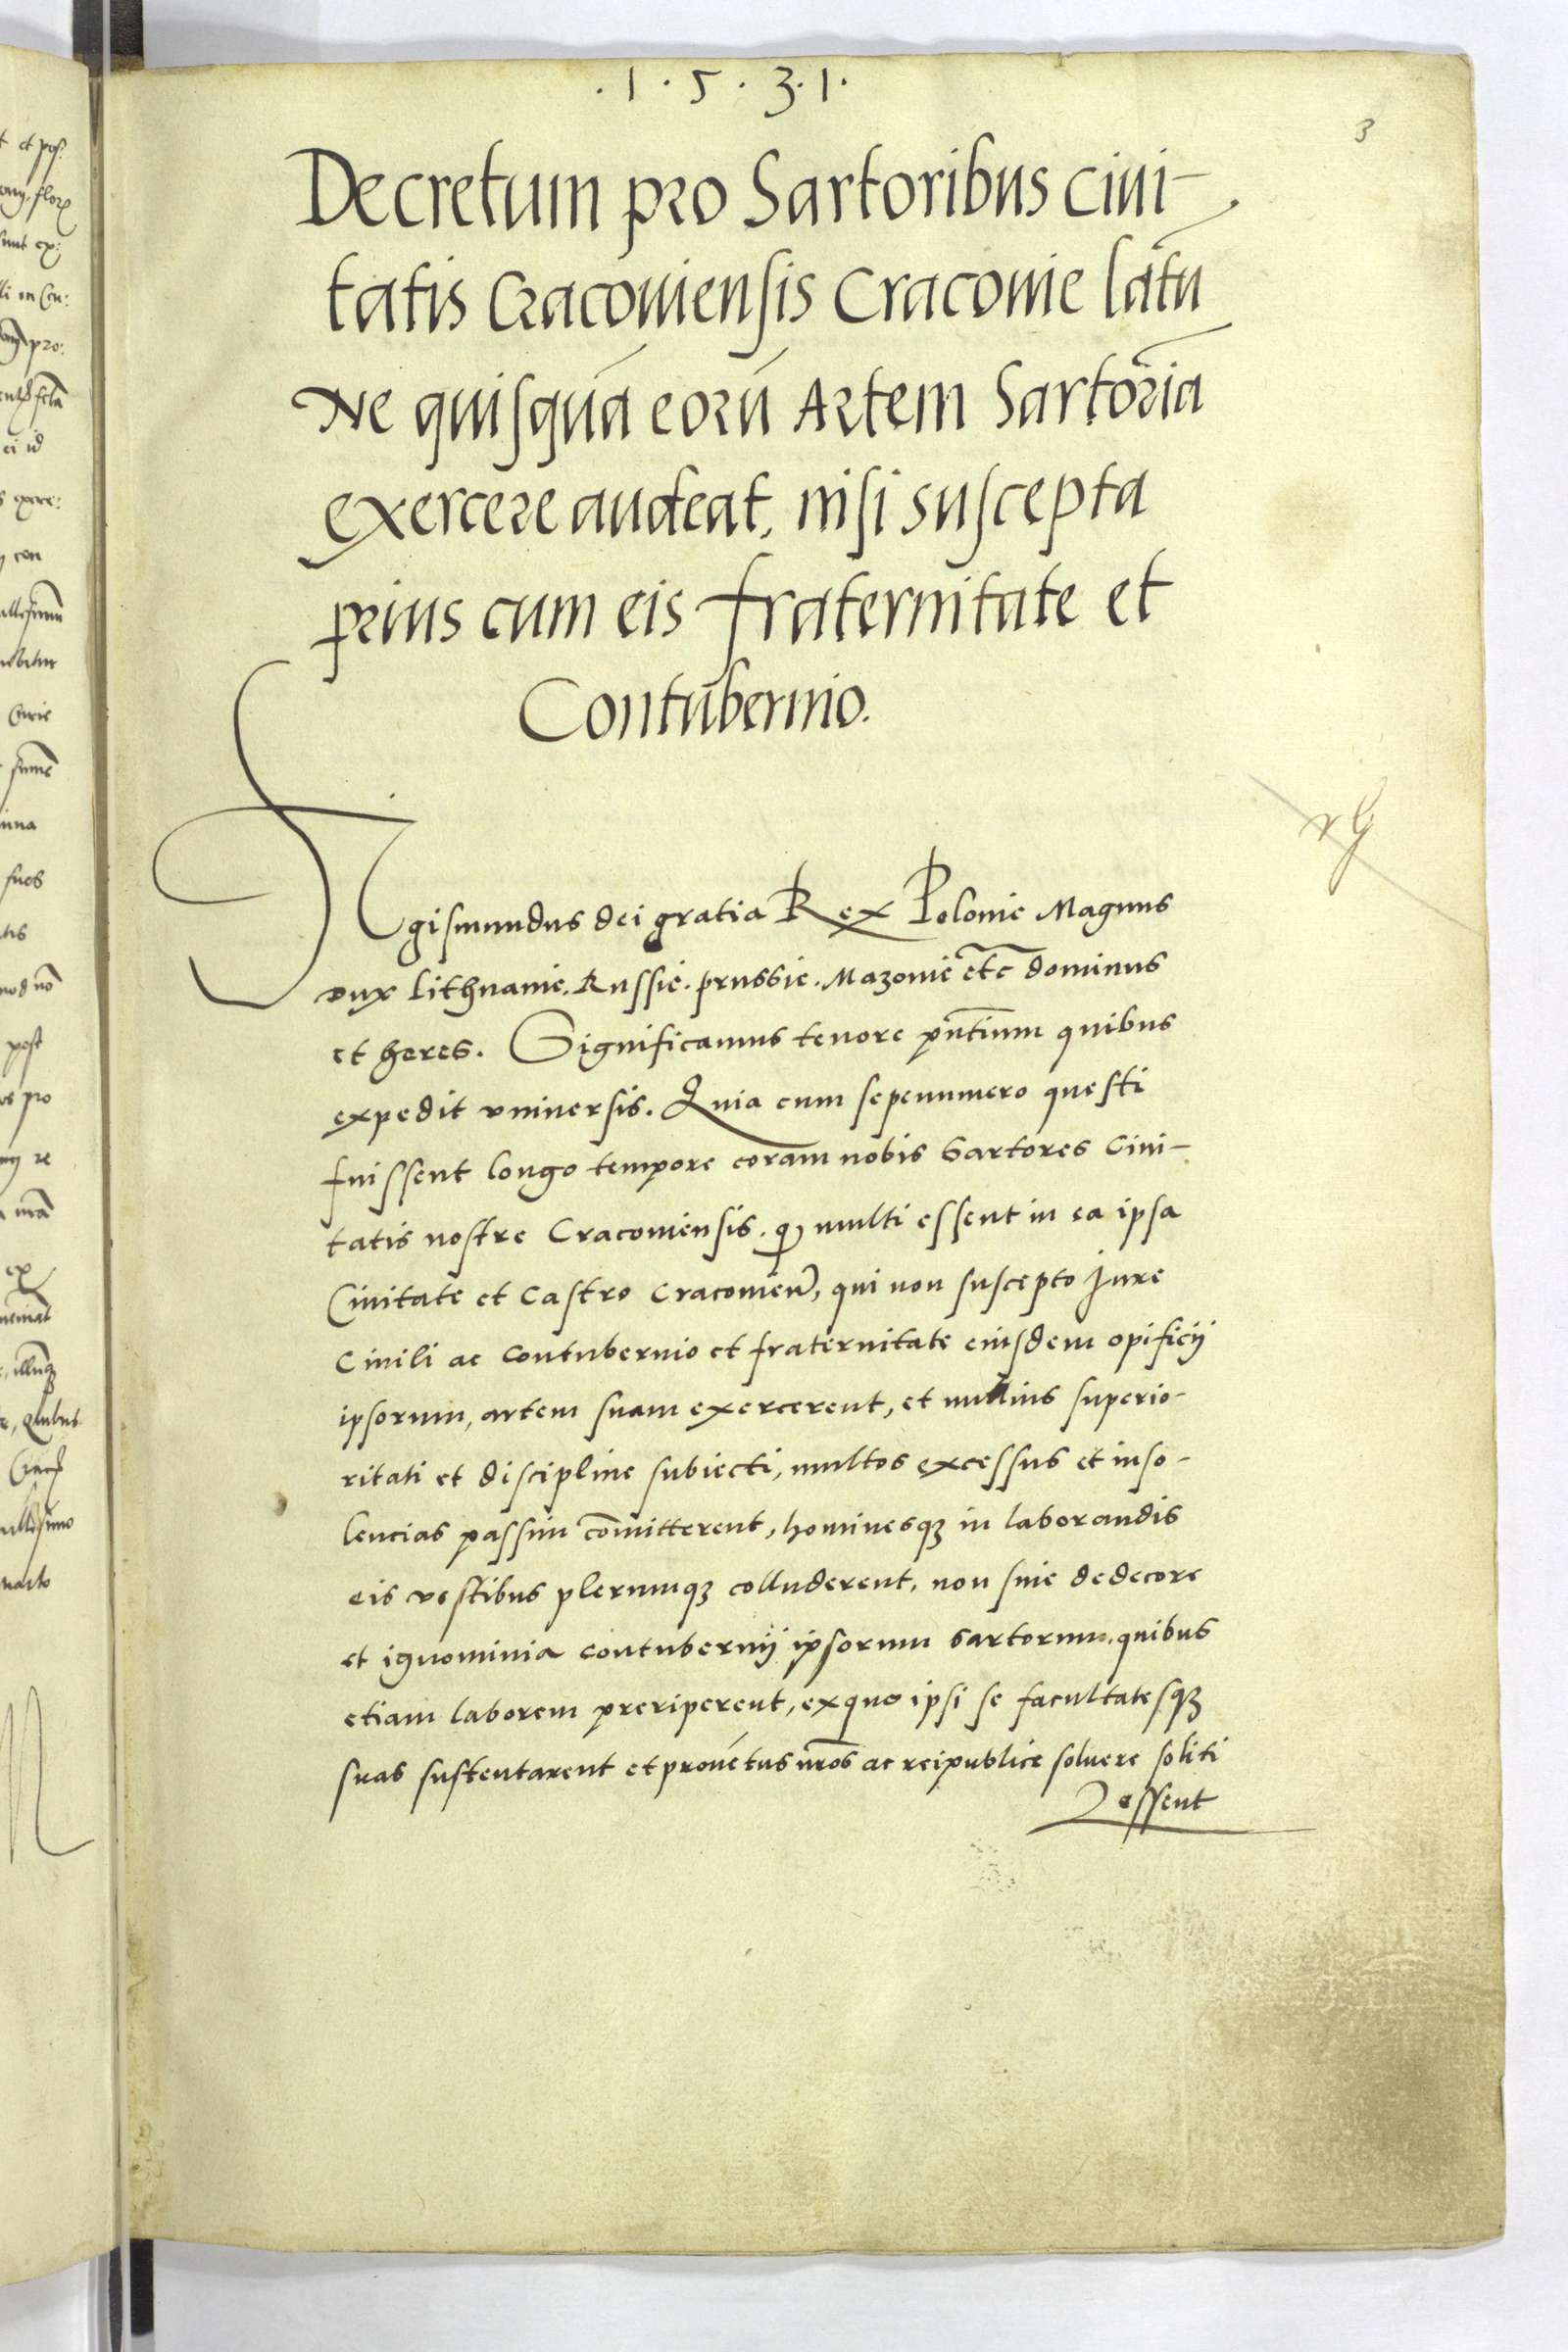 .1.5.3.1.
3
Decretum pro Sartoribus ciui-
tatis Cracouiensis Cracouie latũ
Ne quisquã eorũ Artem Sartoriã
exercere audeat, nisi suscepta
prius cum eis fraternitate et
Contubernio.
Sigismundus dei gratia Rex Polonie Magnus
dux Lithuanie. Russie. prussie. Mazouie etc̃ dominus
et heres. Significamus tenore pñtium quibus
expedit vniuersis. Quia cum sepenumero questi
fuissent longo tempore coram nobis Sartores Ciui-
tatis nostre Cracouiensis. ꝙ multi essent in ea ipsa
Ciuitate et Castro Cracouieñ, qui non suscepto Iure
Ciuili ac contubernio et fraternitate eiusdem opificij
ipsorum, artem suam exercerent, et nullius superio-
ritati et discipline subiecti, multos excessus et inso-
lencias passim cõmitterent, hominesqꝫ in laborandis
eis vestibus plerumqꝫ colluderent, non sine dedecore
et ignominia contubernij ipsorum sartorum. quibus
etiam laborem preriperent, ex quo ipsi se facultatesqꝫ
suas sustentarent et prouẽtus nr̃os ac reipublice soluere soliti
essent